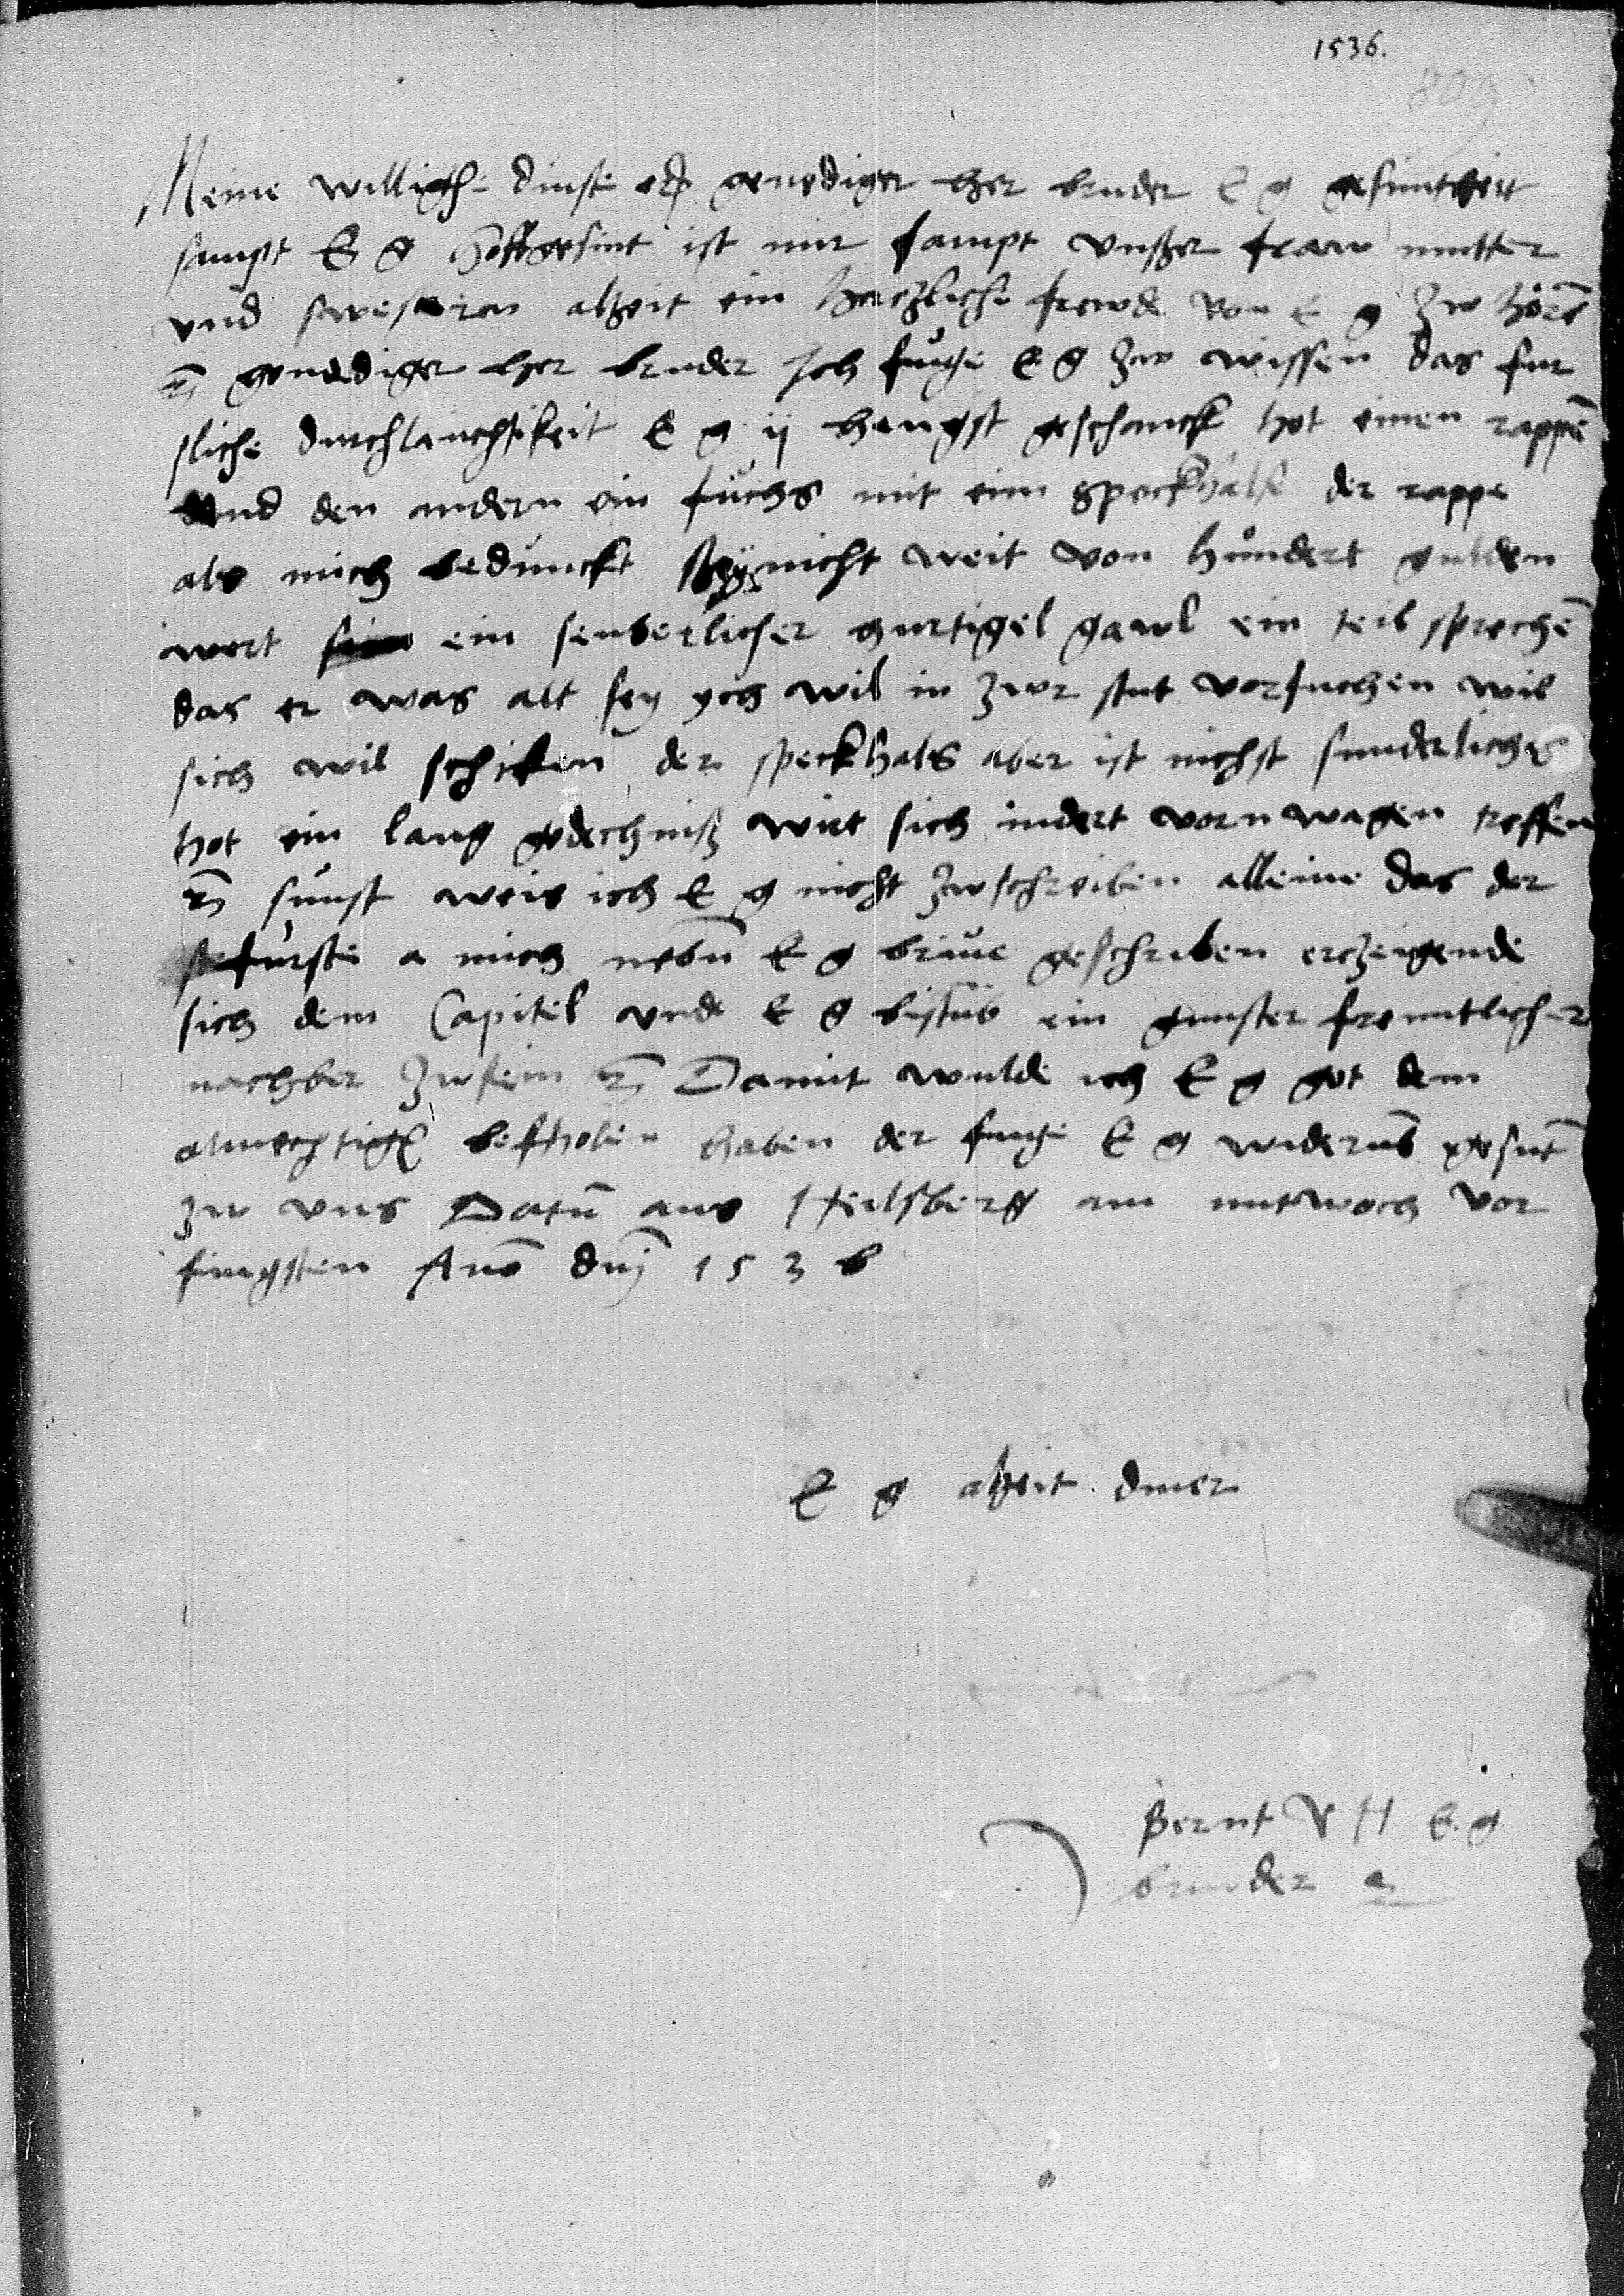 1536.
809
Meine willighe dinste etc. genediger her bruder E g gesuntheit
sampt E g hoffgesint ist mir sampt vnßer fraw mutter
vnd swesteren alzeit ein herzliche frewde von E g zw hörē
etc. genediger her bruder Ich fuge E g zw wissen das fur
sliche durchlauchtikeit E g ij hengst geschanckt hot einen rappē
vnd den andern ein fuchs mit eim speckhalse der rappe
als mich beduncket sey nicht weit von hundert gulden
wert ein seuberlicher hurtigel gawl ein teil sprechē
das er was alt sey ych wil in zwr stut vorsuchen wie
sich wil schiken der speckhals aber ist nichst sunderliches
hot ein lang gedechniß wirt sich indert vorn wagen treffen
etc. sunst weis ich E g nicht zwschreiben alleine das der
furste a mich nebn E g briue geschriben erzeigende
sich dem Capitel vnde E g bistub ein gunster freuntlicher
nachber zw sein etc. Damit wulde ich E g got dem
almechtigē befholen haben der fuge E g widerūb gesūt
zw vns Datū aus Heilsberg am mitwoch vor
fingsten Anō dnj 1536
E g alzeit diner
Bernt V H E. g
bruder